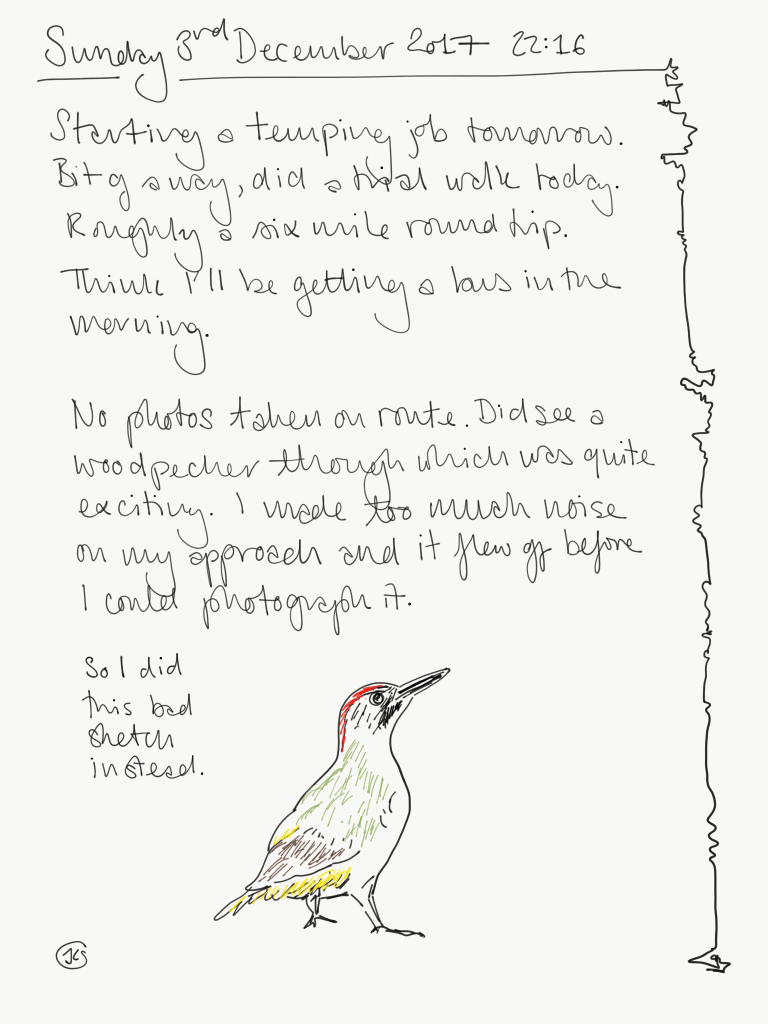 Sunday 3rd December 2017 22:16
Starting a temping job tomorrow.
Bit of a way, did a trial walk today.
Roughly a six mile round trip.
Think I'll be getting a bus in the
morning.
No photos taken on route. Did see a
woodpecker though which was quite
exciting. I made too much noise
on my approach and it flew off before
I could photograph it.
So I did
this bad
sketch
instead.